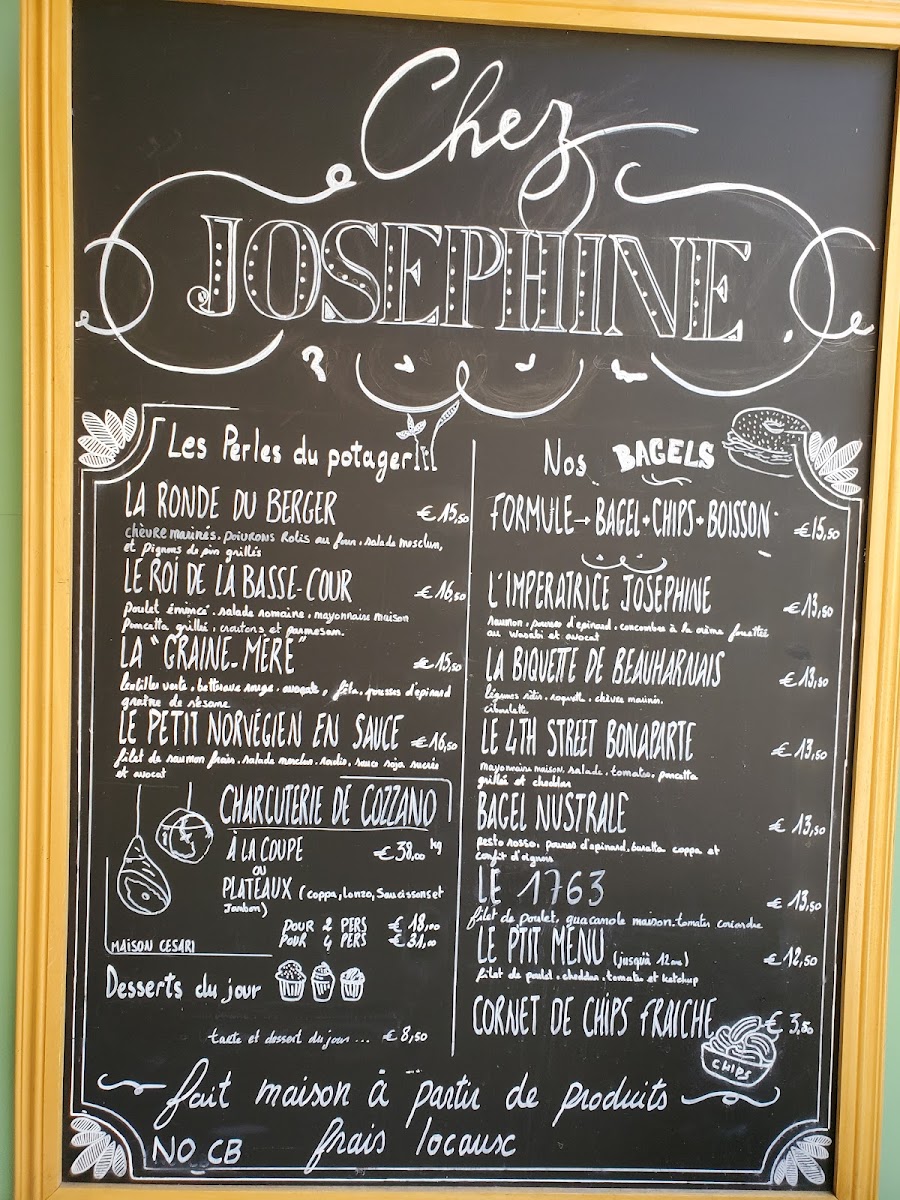 Chez
JOSEPHINE
Les Perles du potager
LA RONDE DU BERGER €15,50
chèvre marinés. poivrons Rotis au four. salade mesclun,
et pignons de pin grillés
LE ROI DE LA BASSE-COUR €16,50
poulet émincé. salade romaine, mayonnaise maison
Pancetta grillé, croutons et parmesan.
LA "GRAINE-MÉRE" €15,50
lentilles verte. betterave rouge. avocats, féta, pousses d'épinard
graine de sésame
LE PETIT NORVÉGIEN EN SAUCE €16,50
filet de saumon frais. salade mesclun. radis. sauce soja sucrée
et avocat
CHARCUTERIE DE COZZANO
À LA COUPE €38,00 kg
OU
PLATEAUX (coppa, Lonzo, Saucissons et
Jambon)
POUR 2 PERS €18,00
POUR 4 PERS €31,00
MAISON CESARI
Desserts du jour
tarte et dessert du jour... €8,50
Nos BAGELS
FORMULE→BAGEL+CHIPS+BOISSON €15,50
L'IMPERATRICE JOSEPHINE €13,50
saumon. pousses d'épinard. concombres à la crème fouettée
au Wasabi et avocat
LA BIQUETTE DE BEAUHARNAIS €13,50
légumes rôtis. roquette. chèvre marinés.
ciboulette.
LE 4TH STREET BONAPARTE €13,50
mayonnaise maison. salade. tomates. pancetta
grillée et cheddar
BAGEL NUSTRALE €13,50
pesto rosso. pousses d'épinard. buratta coppa et
confit d'oignons
LE 1763 €13,50
filet de poulet, guacamole maison. tomates coriandre
LE PTIT MENU (jusqu'à 12 ans) €12,50
filet de poulet. cheddar. tomates et ketchup
CORNET DE CHIPS FRAICHE €3,80
CHIPS
fait maison à partir de produits
frais locaux
NO CB